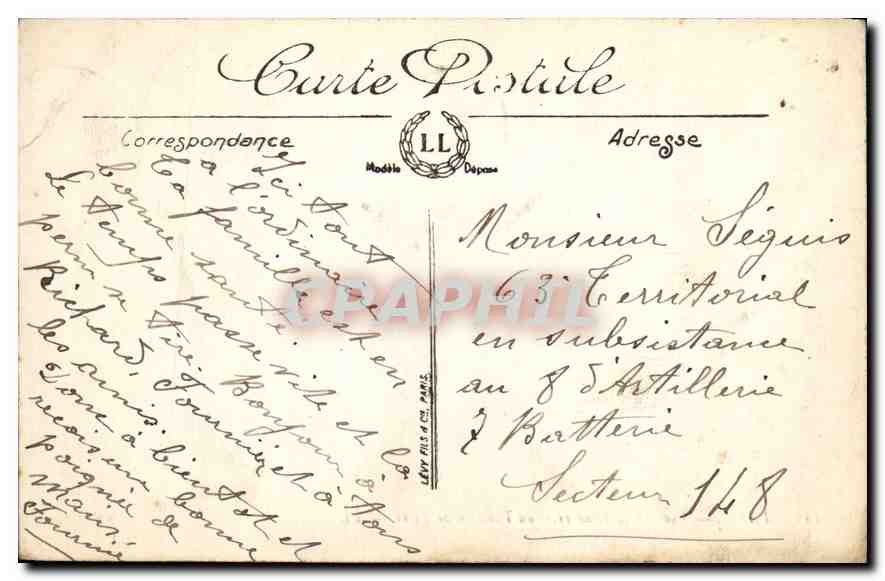 Carte Postale
Correspondance
LL
Modèle Déposé
Adresse
Ici tout
à l'ordinaire
Ta famille est en
bonne santé
Le temps passe vite et la
perm tire Bonjour à tous
Richard, Fournier et à
les amis à bientot et
Donc recois une bonne
poignée de
mains
Fournié
LÉVY FILS & Cie, PARIS.
Monsieur Séguis
63e Territorial
en subsistance
au 8 d'Artillerie
7 Batterie
Secteur 148
CPAPHIL